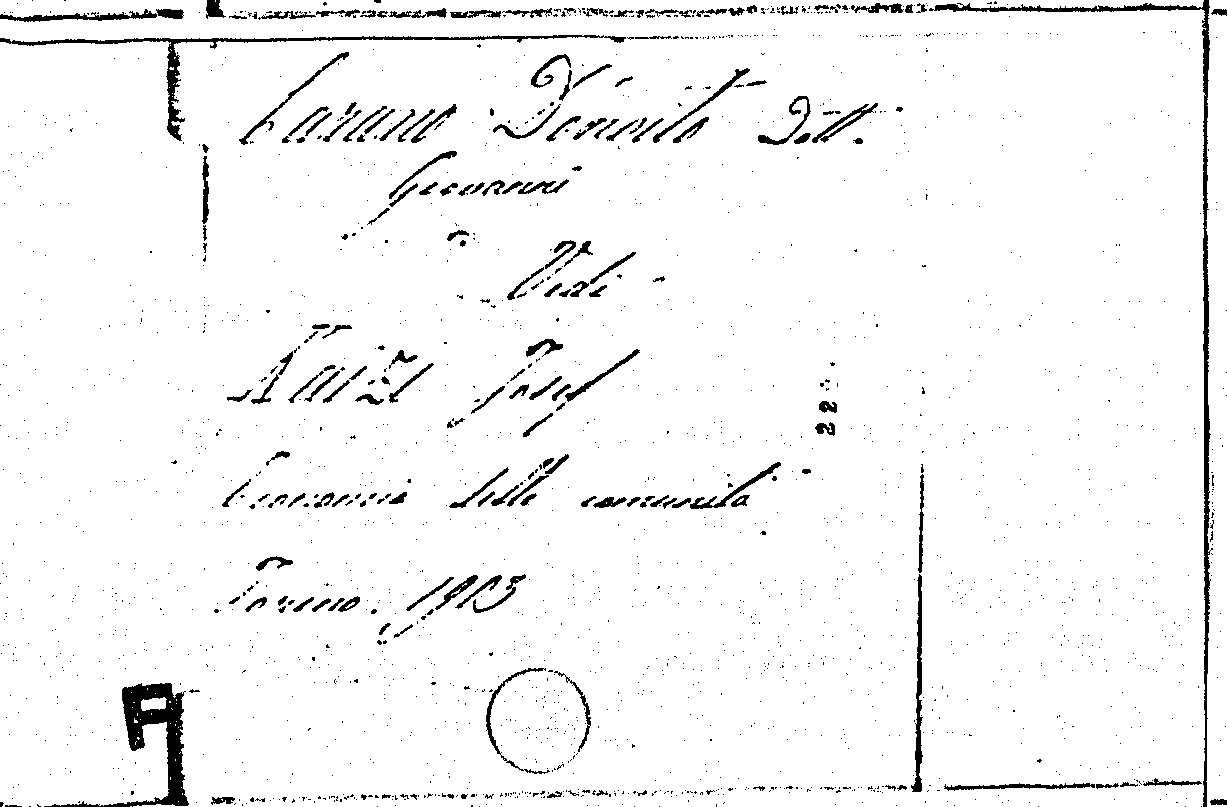 Carano Donvito Dott.
Giovanni
Vedi
Kaizl Josef
Economia delle comunità
Torino. 1913
22